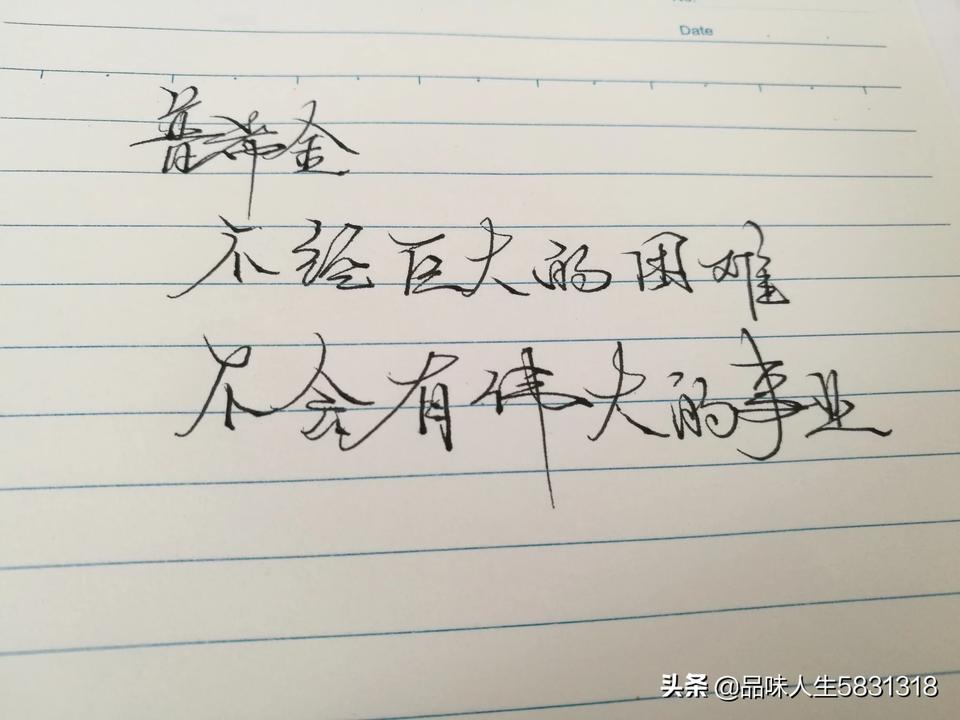 Date
普希金
不经巨大的困难
不会有伟大的事业
头条 @品味人生5831318